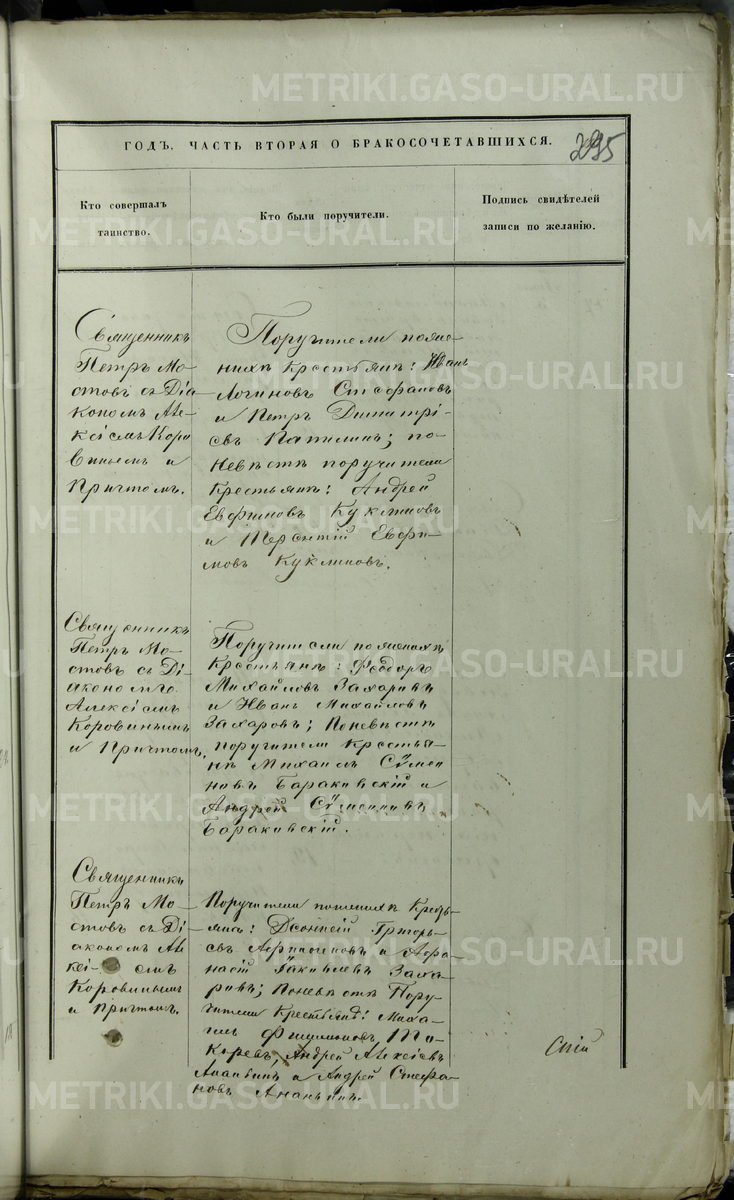 ГОДЪ. ЧАСТЬ ВТОРАЯ О БРАКОСОЧЕТАВШИХСЯ.
295
Кто совершалъ
таинство.
Кто были поручители.
Подпись свидѣтелей
записи по желанію.
Священникъ
Петръ Мо-
стовъ съ Діа
кономъ Але-
ксіемъ Коро
виннымъ и
Причтомъ.
Поручители по жени-
хѣ Крестьяне: Иванъ
Логиновъ Стефановъ
и Петръ Димитрі-
евъ
по-
невѣстѣ поручители
Крестьяне: Андрей
Евфимовъ Куклиновъ
и Терентій Евфи-
мовъ Куклиновъ.
Священникъ
Петръ Мо-
стовъ съ Ді-
акономъ
Алексіемъ
Коровинымъ
и Причтомъ.
Поручители по женихѣ
Крестьяне: Ѳеодоръ
Михайловъ Захаровъ
и Иванъ Михайловъ
Захаровъ; По невѣстѣ
поручители Крестья-
не Михаилъ Сѵмео
новъ Бараковскій и
Андрей Сѵмеоновъ
Бараковскій.
Священникъ
Петръ Мо-
стовъ съ Ді-
акономъ Але
ксі- емъ
Коровинымъ
и Причтомъ.
Поручители по женихѣ Кресть-
яне: Григорь-
евъ и Афа-
насій Іаковлевъ Заха-
ровъ; По невѣстѣ Пору-
чители Крестьяне: Миха-
илъ Филимоновъ То-
каревъ, Андрей Алексіевъ
Ананьинъ и Андрей Стефа-
новъ Ананьинъ.
METRIKI.GASO-URAL.RU